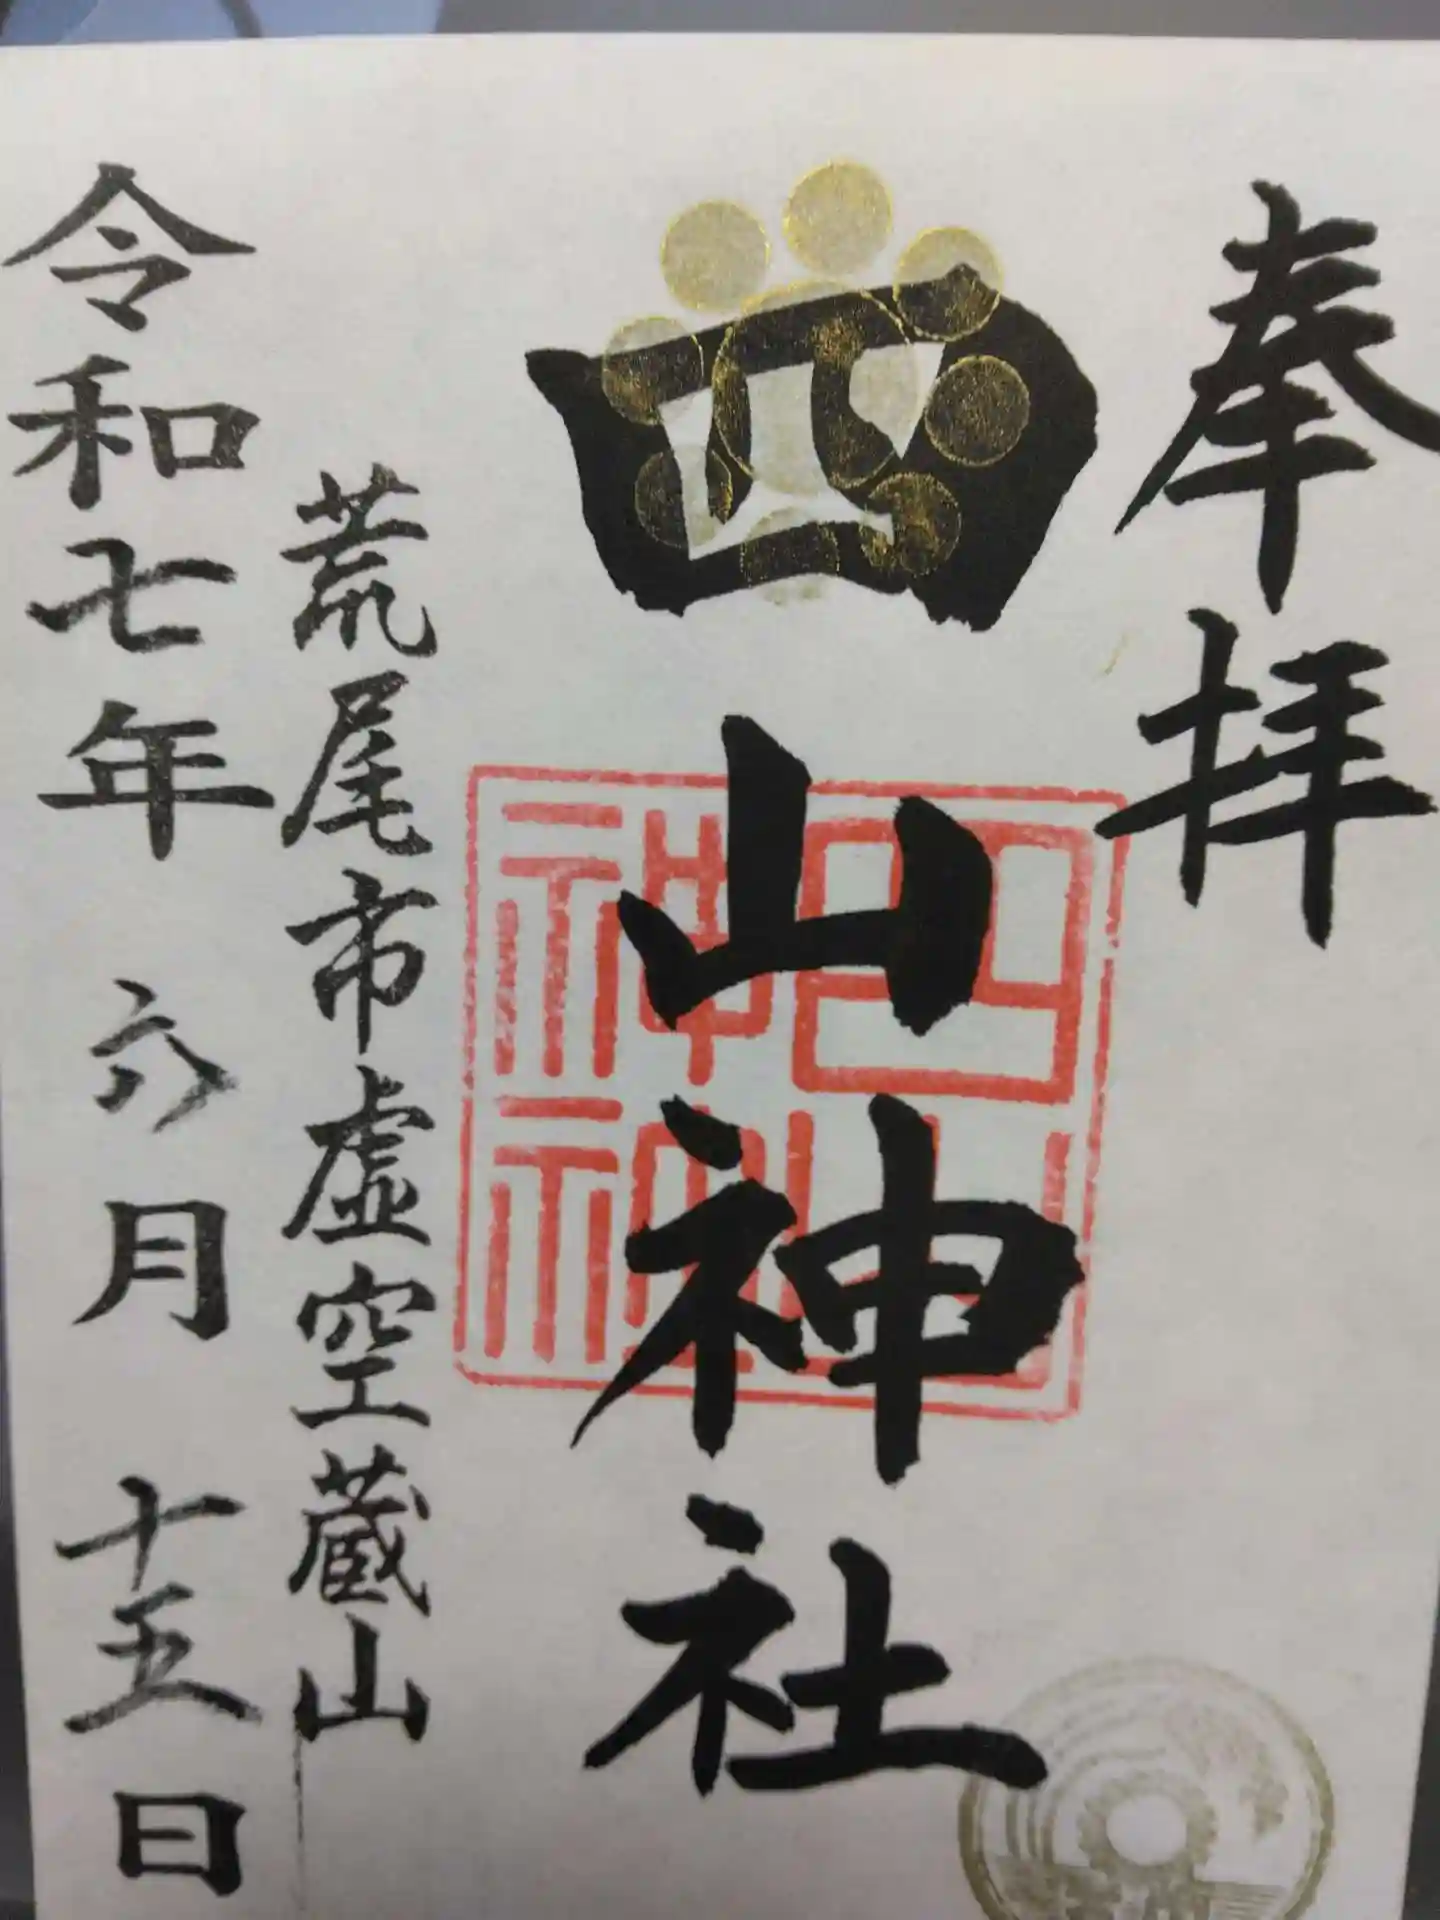 奉拝
四山神社
四山神社神社
荒尾市虚空蔵山
令和七年 六月 十五日